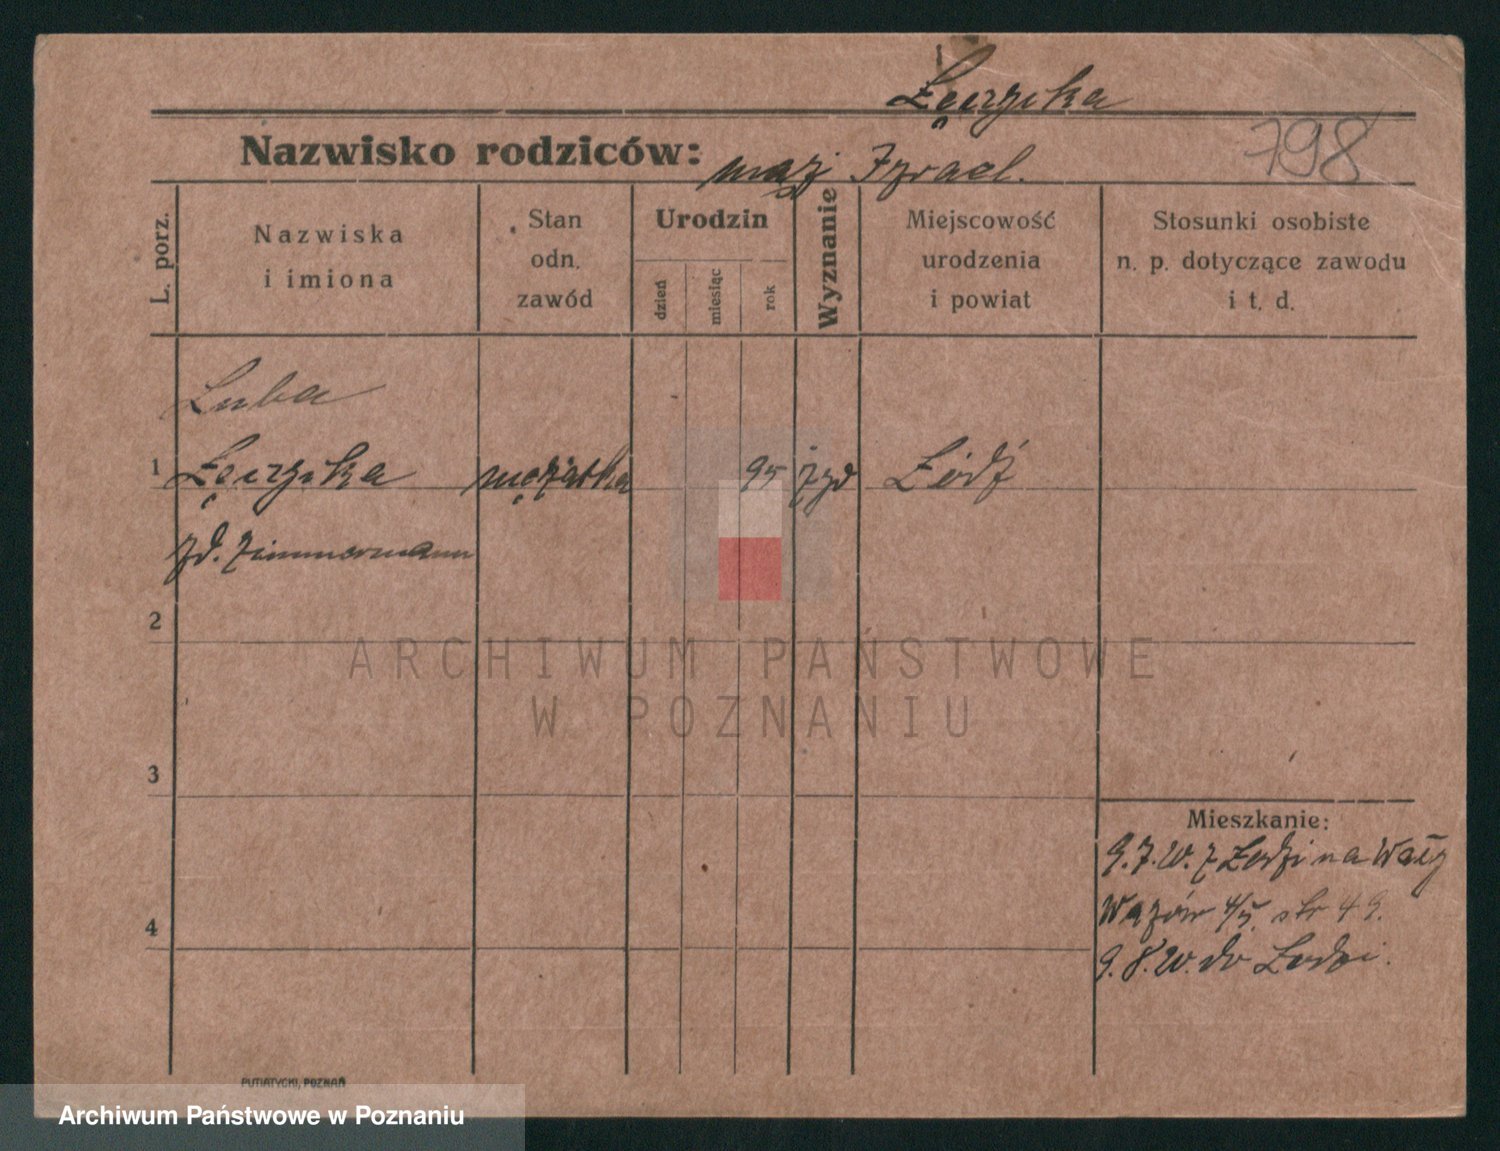 Łęczycka
Nazwisko rodziców: mąż Izrael.
798
L. porz.
Nazwiska
i imiona
Stan
odn.
zawód
Urodzin
dzień
miesiąc
rok
Wyznanie
Miejscowość
urodzenia
i powiat
Stosunki osobiste
n. p. dotyczące zawodu
i t. d.
Luba
1 Łęczycka mężatka 95 żyd Łódź
zd. Zimmermann
2
ARCHIWUM PAŃSTWOWE
W POZNANIU
3
Mieszkanie:
9.7.20. z Łodzi na Wały
Wazów 4/5. str 49.
4
9.8.20. do Łodzi.
PUTIATYCKI, POZNAŃ
Archiwum Państwowe w Poznaniu